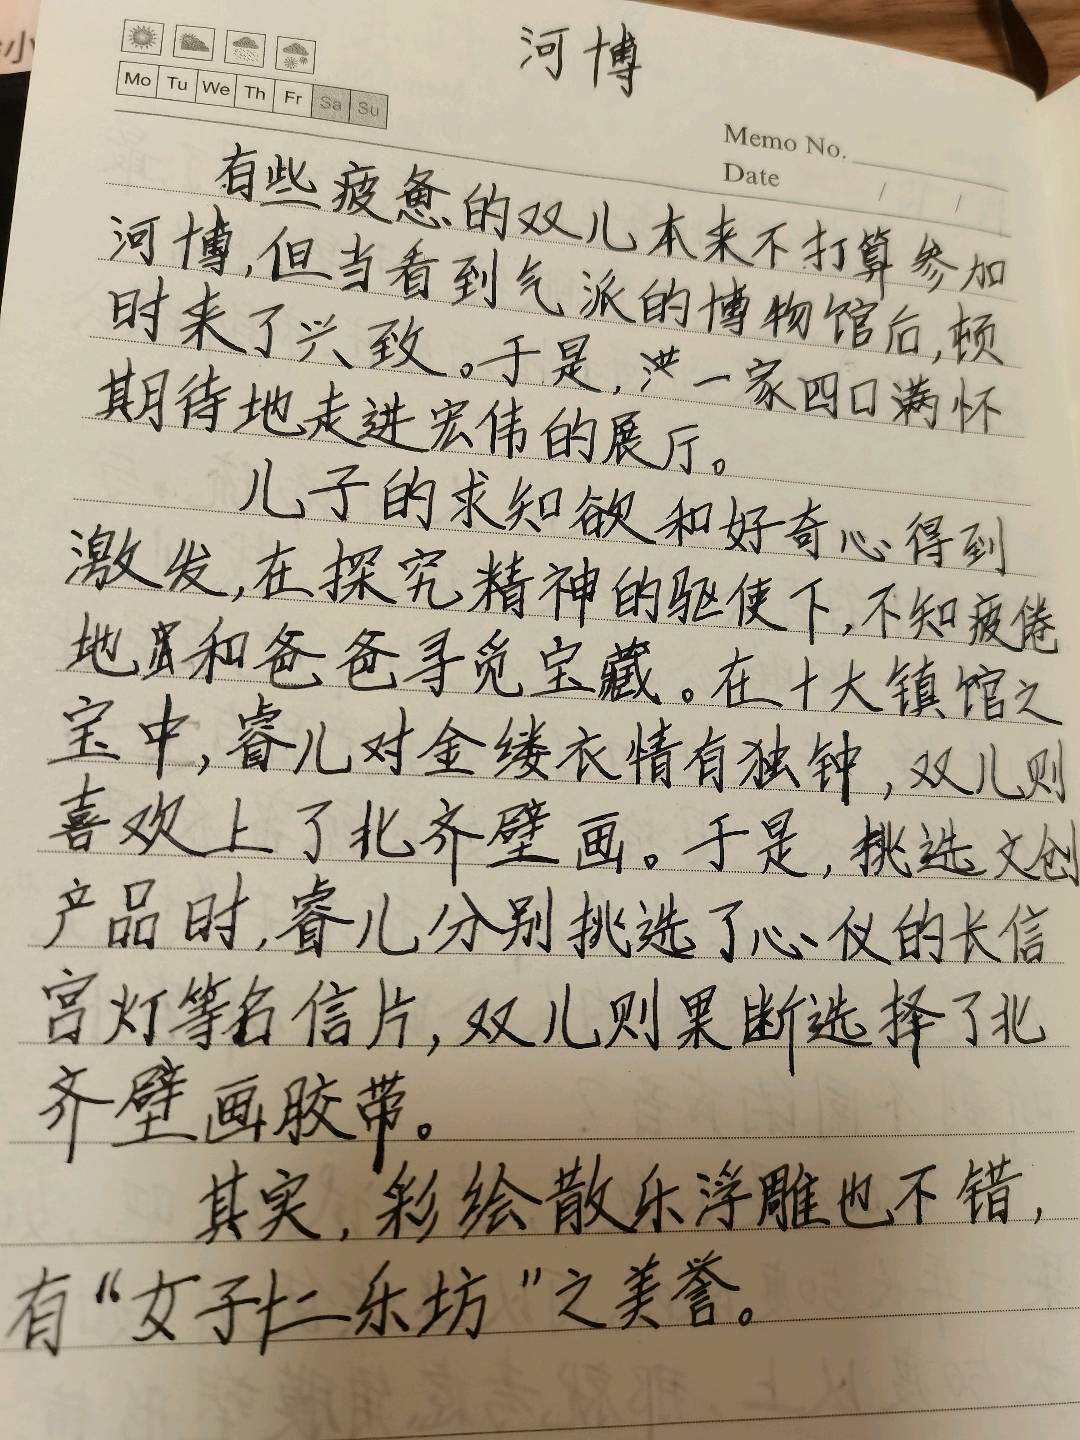 河博
Mo Tu We Th Fr Sa Su
Memo No.
Date / /
有些疲惫的双儿本来不打算参加
河博,但当看到气派的博物馆后,顿
时来了兴致。于是,一家四口满怀
期待地走进宏伟的展厅。
儿子的求知欲和好奇心得到
激发,在探究精神的驱使下,不知疲倦
地和爸爸寻觅宝藏。在十大镇馆之
宝中,睿儿对金缕衣情有独钟,双儿则
喜欢上了北齐壁画。于是,挑选文创
产品时,睿儿分别挑选了心仪的长信
宫灯等名信片,双儿则果断选择了北
齐壁画胶带。
其实,彩绘散乐浮雕也不错,
有“女子十二乐坊”之美誉。